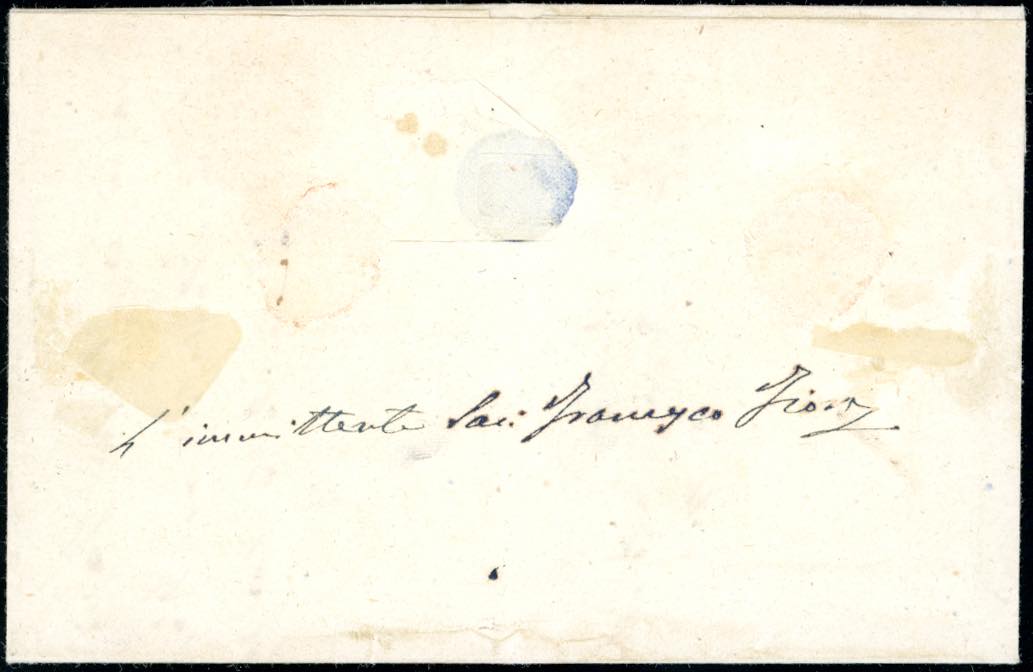 L'immittente Sac: Francesco Fiore